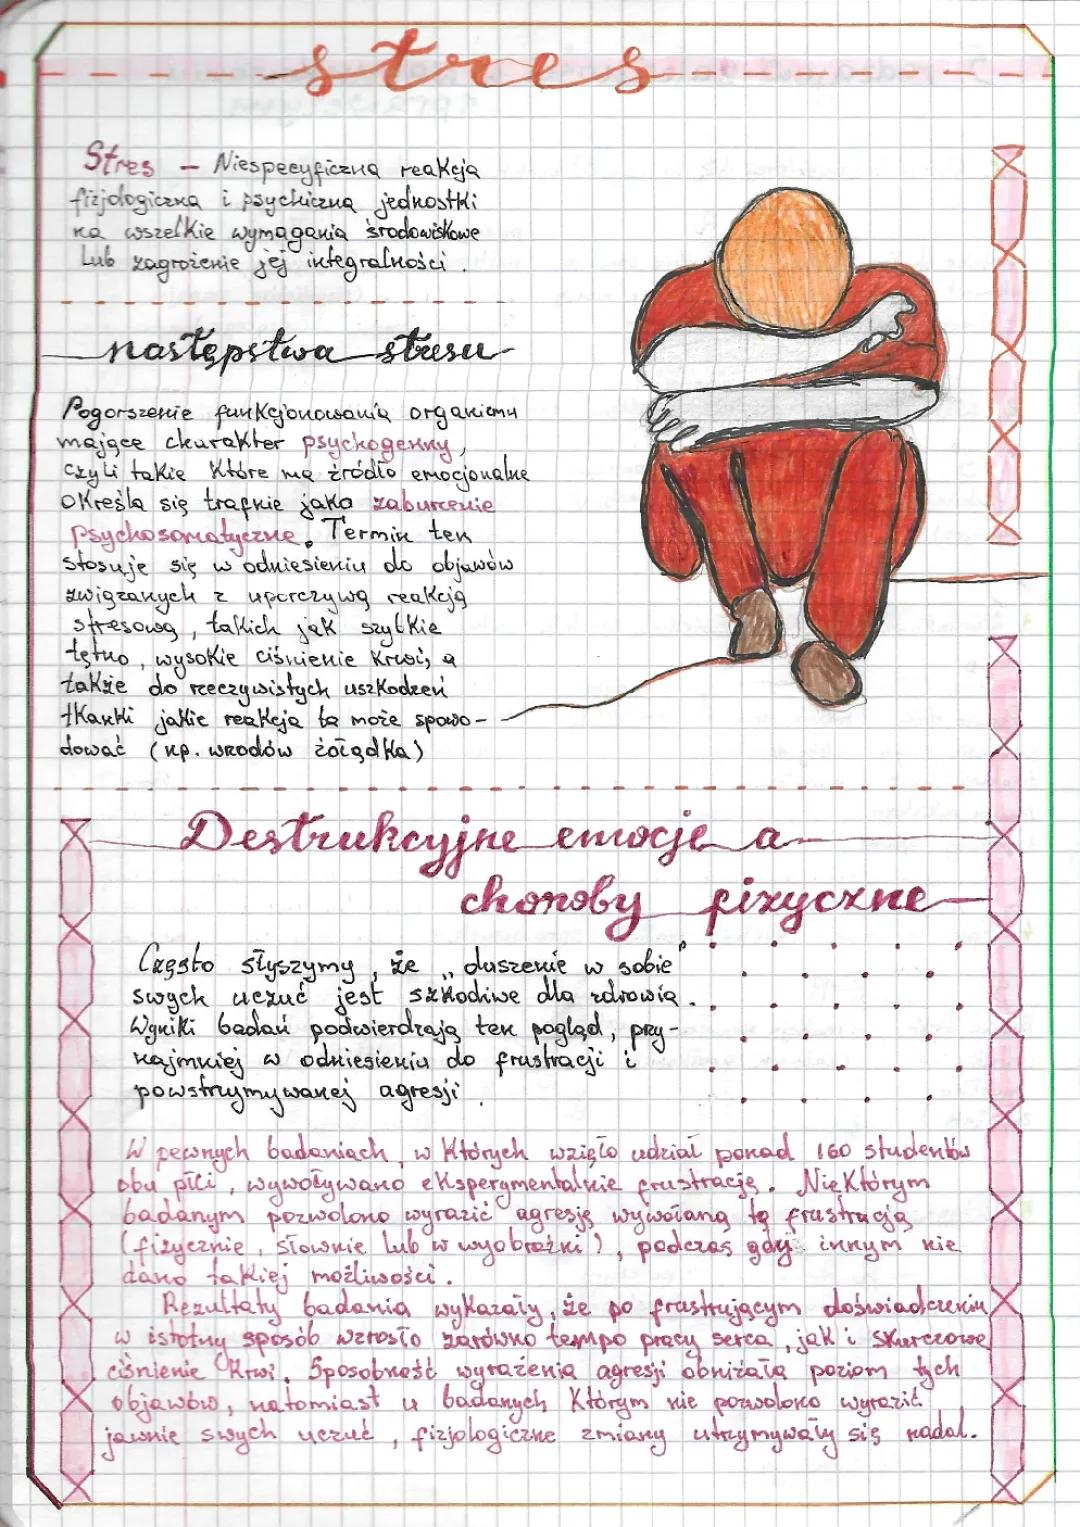 stres
Stres - Niespecyficzna reakcja
fizjologiczna i psychiczna jednostki
na wszelkie wymagania środowiskowe
lub zagrożenie jej integralności.
następstwa stresu
Pogorszenie funkcjonowania organizmu
mające charakter psychogenny,
czyli takie które ma źródło emocjonalne
określa się trafnie jako zaburzenie
psychosomatyczne. Termin ten
stosuje się w odniesieniu do objawów
związanych z uporczywą reakcją
stresową, takich jak szybkie
tętno, wysokie ciśnienie krwi, a
także do rzeczywistych uszkodzeń
tkanki jakie reakcja ta może spowo-
dować (np. wrodów żołądka)
Destrukcyjne emocje a
choroby fizyczne
Często słyszymy, że „duszenie w sobie"
swych uczuć jest szkodliwe dla zdrowia.
Wyniki badań podwierdzają ten pogląd, przy-
najmniej w odniesieniu do frustracji i
powstrzymywanej agresji.
W pewnych badaniach, w których wzięło udział ponad 160 studentów
obu płci, wywoływano eksperymentalnie frustrację. Niektórym
badanym pozwolono wyrazić agresję wywołaną tą frustracją
(fizycznie, słownie lub w wyobraźni), podczas gdy innym nie
dano takiej możliwości.
Rezultaty badania wykazały, że po frustrującym doświadczeniu,
w istotny sposób wzrosło zarówno tempo pracy serca, jak i skurczowe
ciśnienie krwi. Sposobność wyrażenia agresji obniżała poziom tych
objawów, natomiast u badanych, którym nie pozwolono wyrazić
jawnie swych uczuć, fizjologiczne zmiany utrzymywały się nadal.